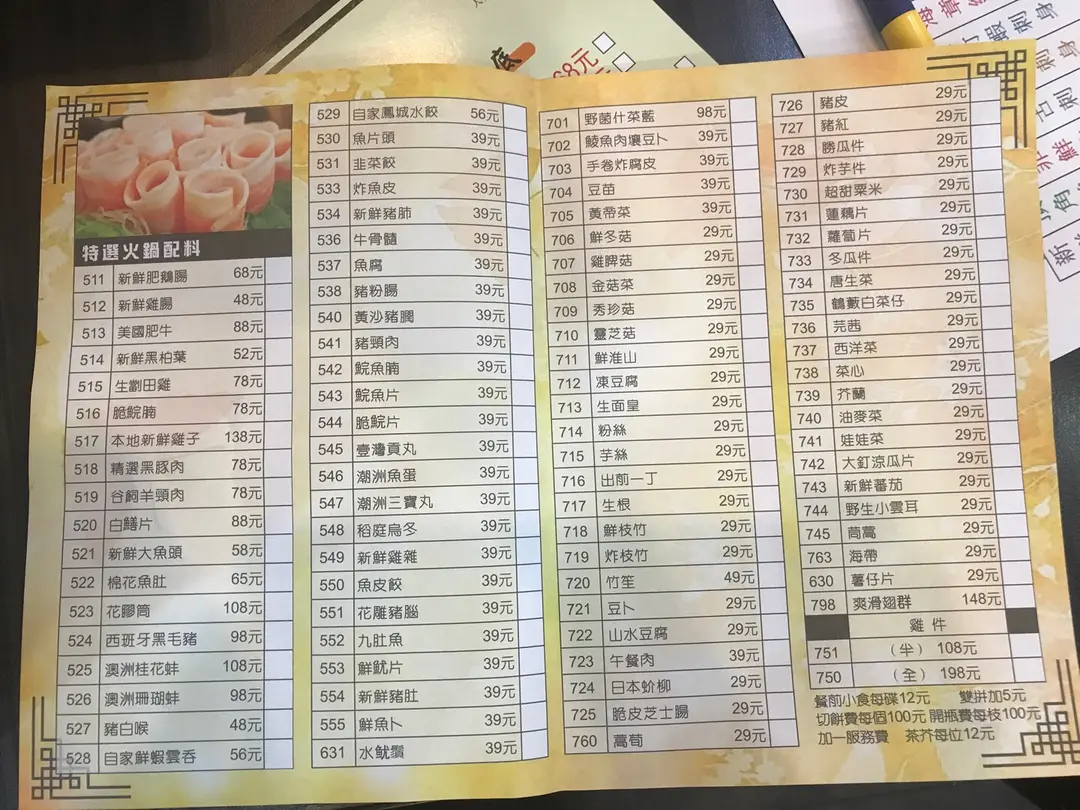 特選火鍋配料
511 新鮮肥鵝腸 68元
512 新鮮雞腸 48元
513 美國肥牛 88元
514 新鮮黑柏葉 52元
515 生劏田雞 78元
516 脆鯇腩 78元
517 本地新鮮雞子 138元
518 精選黑豚肉 78元
519 谷飼羊頸肉 78元
520 白鱔片 88元
521 新鮮大魚頭 58元
522 棉花魚肚 65元
523 花膠筒 108元
524 西班牙黑毛豬 98元
525 澳洲桂花蚌 108元
526 澳洲珊瑚蚌 98元
527 豬白喉 48元
528 自家鮮蝦雲吞 56元
529 自家鳳城水餃 56元
530 魚片頭 39元
531 韭菜餃 39元
533 炸魚皮 39元
534 新鮮豬肺 39元
536 牛骨髓 39元
537 魚腐 39元
538 豬粉腸 39元
540 黃沙豬膶 39元
541 豬頸肉 39元
542 鯇魚腩 39元
543 鯇魚片 39元
544 脆鯇片 39元
545 臺灣貢丸 39元
546 潮洲魚蛋 39元
547 潮洲三寶丸 39元
548 稻庭烏冬 39元
549 新鮮雞雜 39元
550 魚皮餃 39元
551 花雕豬腦 39元
552 九肚魚 39元
553 鮮魷片 39元
554 新鮮豬肚 39元
555 鮮魚卜 39元
631 水魷鬚 39元
701 野菌什菜籃 98元
702 鯪魚肉壤豆卜 39元
703 手卷炸腐皮 39元
704 豆苗 39元
705 黃帝菜 39元
706 鮮冬菇 29元
707 雞脾菇 29元
708 金菇菜 29元
709 秀珍菇 29元
710 靈芝菇 29元
711 鮮淮山 29元
712 凍豆腐 29元
713 生面皇 29元
714 粉絲 29元
715 芋絲 29元
716 出前一丁 29元
717 生根 29元
718 鮮枝竹 29元
719 炸枝竹 29元
720 竹笙 49元
721 豆卜 29元
722 山水豆腐 29元
723 午餐肉 39元
724 日本蚧柳 29元
725 脆皮芝士腸 29元
760 萵荀 29元
726 豬皮 29元
727 豬紅 29元
728 勝瓜件 29元
729 炸芋件 29元
730 超甜粟米 29元
731 蓮藕片 29元
732 蘿蔔片 29元
733 冬瓜件 29元
734 唐生菜 29元
735 鶴藪白菜仔 29元
736 芫茜 29元
737 西洋菜 29元
738 菜心 29元
739 芥蘭 29元
740 油麥菜 29元
741 娃娃菜 29元
742 大釘涼瓜片 29元
743 新鮮蕃茄 29元
744 野生小雲耳 29元
745 茼蒿 29元
763 海帶 29元
630 薯仔片 29元
798 爽滑翅群 148元
雞件
751 （半） 108元
750 （全） 198元
餐前小食每碟12元 雙拼加5元
切餅費每個100元 開瓶費每枝100元
加一服務費 茶芥每位12元
底
68元
刺身
蝦刺身